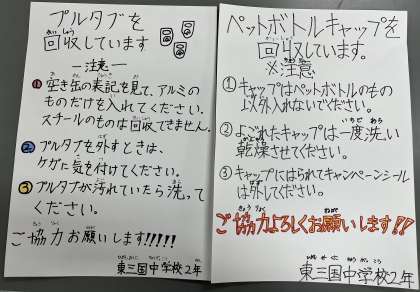 プルタブを
回収しています
ー注意ー
① 空き缶の表記を見て、アルミの
ものだけを入れてください。
スチールのものは回収できません。
② プルタブを外すときは、
ケガに気を付けてください。
③ プルタブが汚れていたら洗って
ください。
ご協力お願いします!!!!!
東三国中学校2年
ペットボトルキャップを
回収しています。
※注意
① キャップはペットボトルのもの
以外入れないでください。
② よごれたキャップは一度洗い
乾燥させてください。
③ キャップにはられてキャンペーンシール
は外してください。
ご協力よろしくお願いします!!
東三国中学校2年